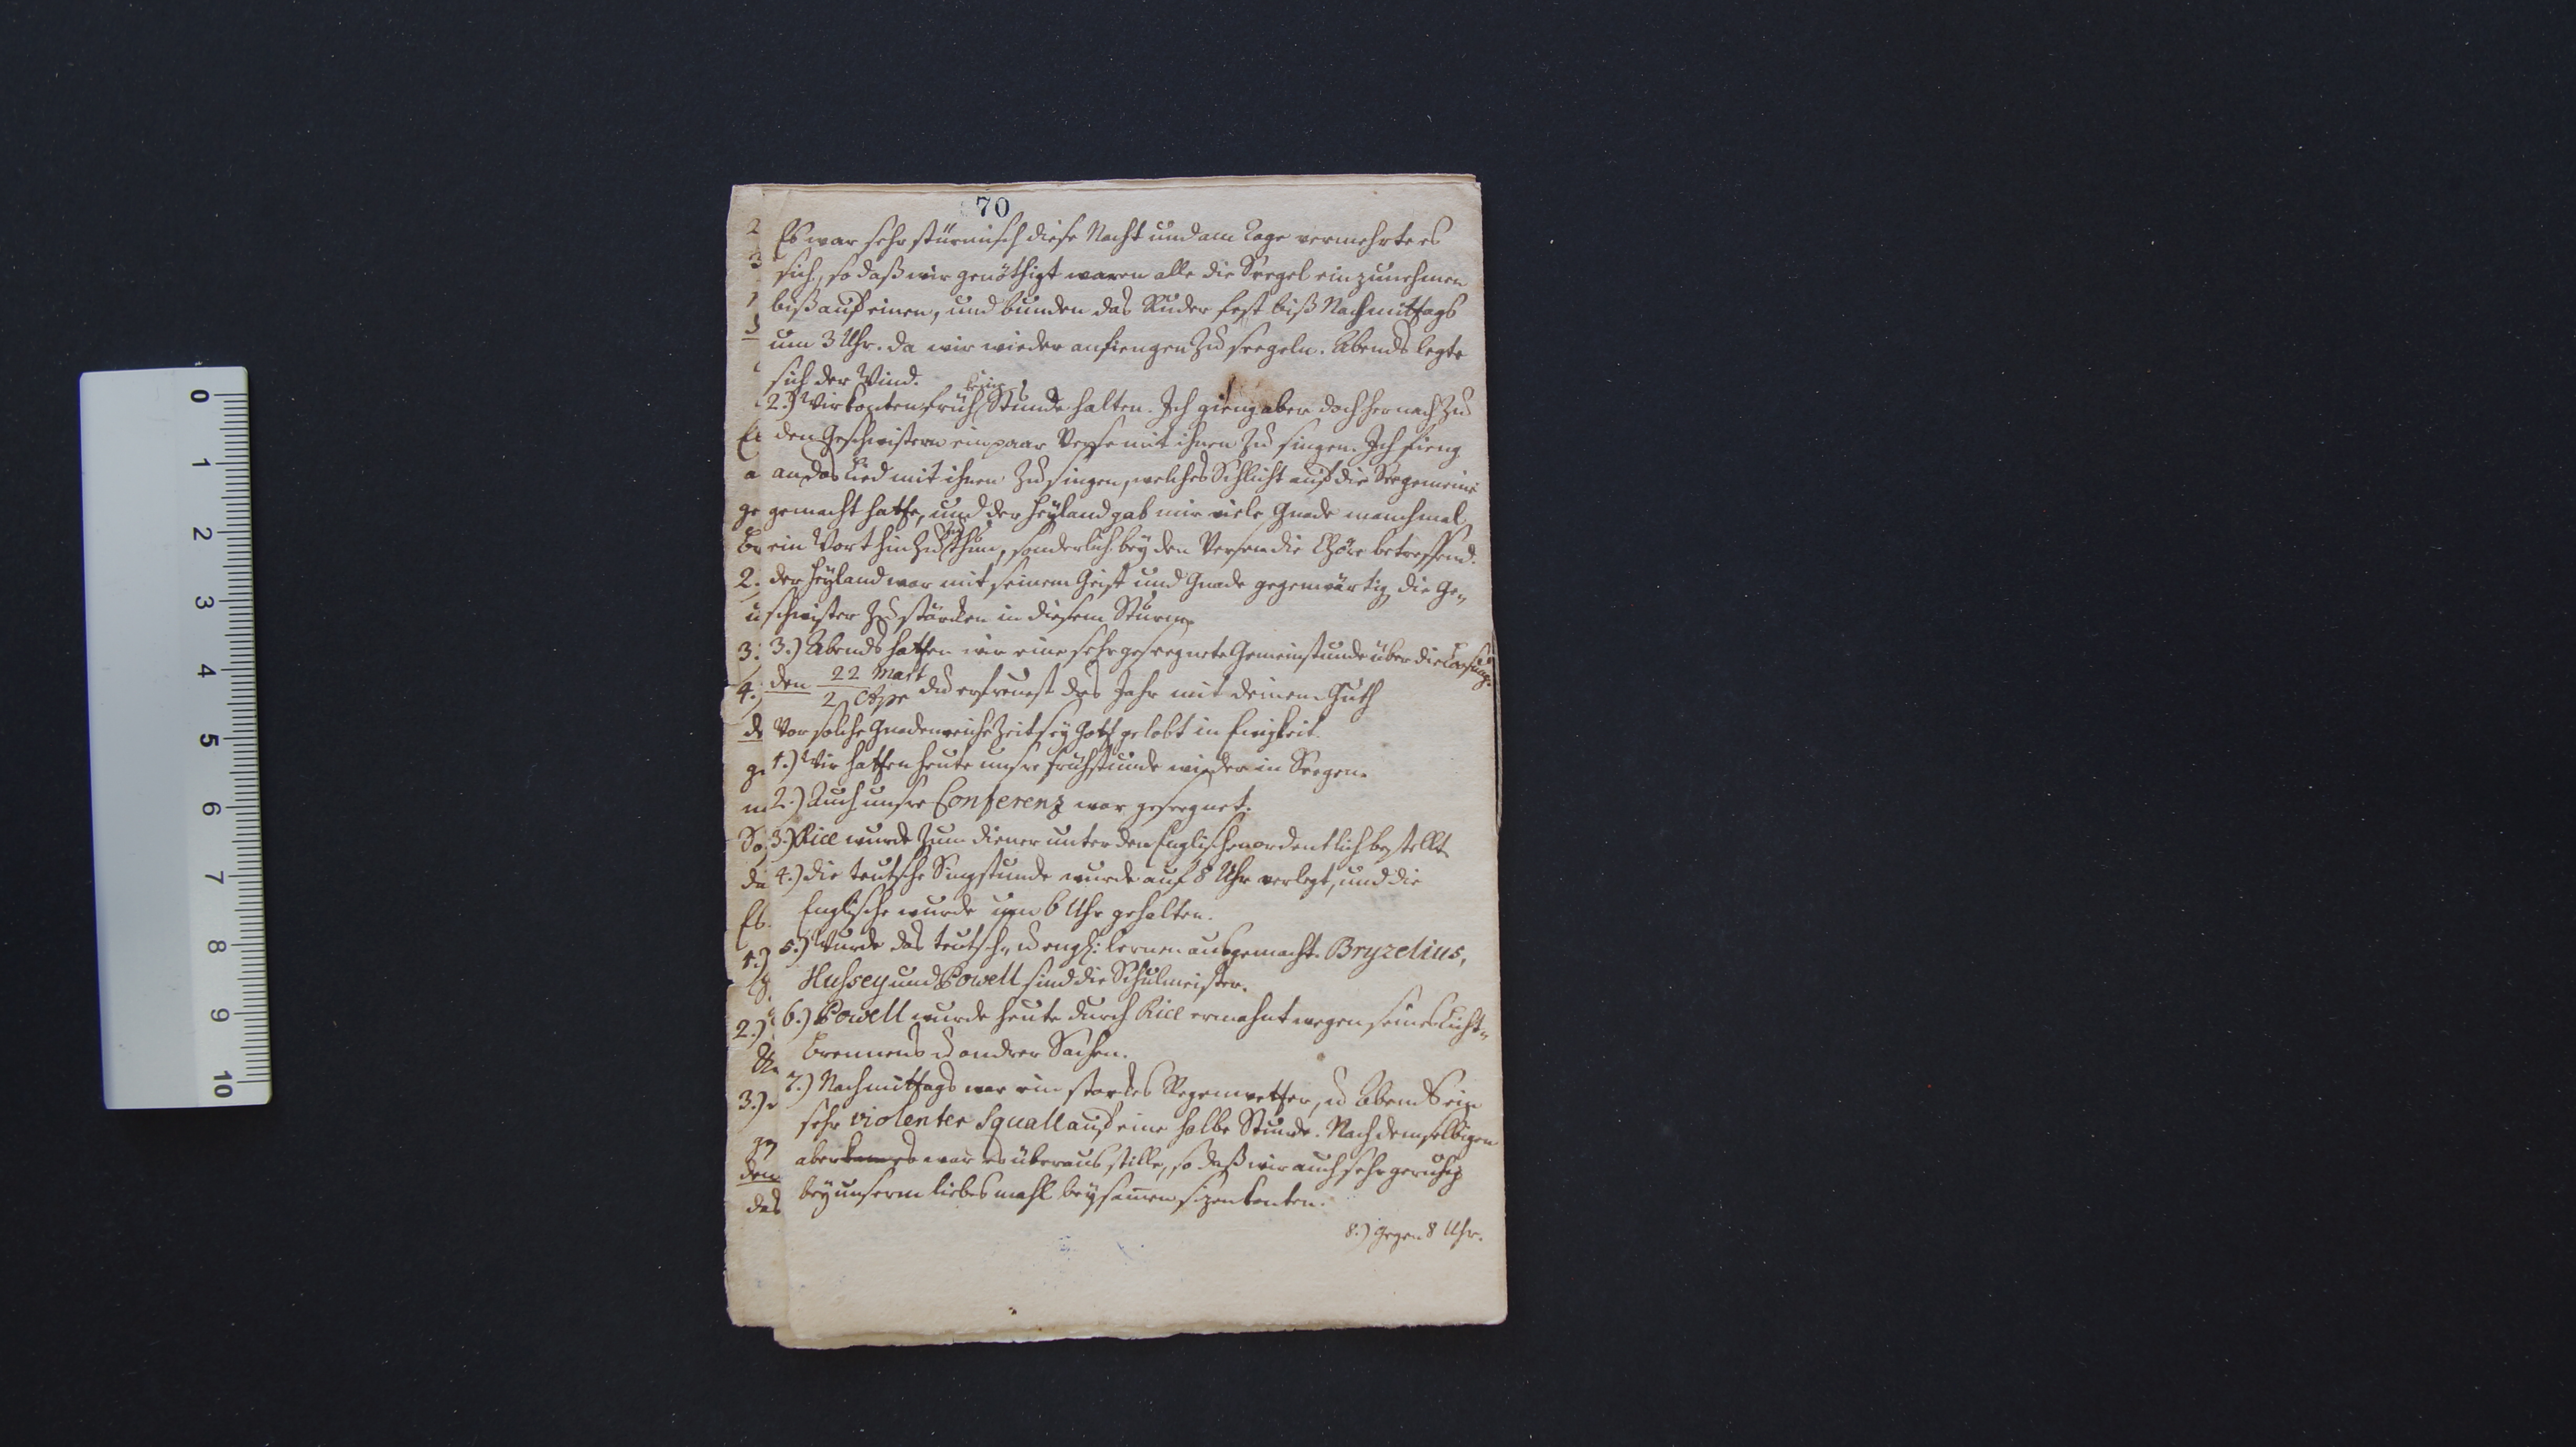 70
Es war sehr stürmisch diese Nacht und am Tage vermehrte es
sich, so daß wir genöthigt waren alle die Seegel einzunehmen
biß auf einen, und bunden das Ruder fest biß Nachmittags
um 3 Uhr. da wir wieder anfiengen zu seegeln. Abends legte
sich der Wind.
2.) Wir konten früh keine Stunde halten. Ich gieng aber doch hernach zu
den Geschwistern ein paar Verse mit ihnen zu singen. Ich fieng
an das Lied mit ihnen zu singen, welches Schlicht auf die Seegemeine
gemacht hatte, und der Heyland gab mir viele Gnade manchmal
ein Wort hinzu zu thun, sonderlich bey den Versen die Chöre betreffend.
der Heyland war mit seinem Geist und Gnade gegenwärtig die Ge-
schwister zu stärcken in diesem Sturm.
3.) Abends hatten wir eine sehr geseegnete Gemeinstunde über die Losung.
den 22 Mart / 2 Apr du erfreuest das Jahr mit deinem Guth
Vor solche Gnadenreiche Zeit sey Gott gelobt in Ewigkeit.
1.) Wir hatten heute unsre Frühstunde wieder in Seegen.
2.) Auch unsre Conferenz war geseegnet.
3.) Rice wurde zum diener unter den Englischen ordentlich bestellt
4.) die teutsche Singstunde wurde auf 8 Uhr verlegt, und die
Englische wurde um 6 Uhr gehalten.
5.) Wurde das teutsch- u engl: lernen ausgemacht. Bryzelius,
Hussey und Powell sind die Schulmeister.
6.) Powell wurde heute durch Rice ermahnt wegen seines Licht-
brennens u andrer Sachen.
7.) Nachmittags war ein starkes Regenwetter, u Abends ein
sehr violenter Squall auf eine halbe Stunde. Nach demselbigen
aber kam es war es überaus stille, so daß wir auch sehr geruhig
bey unserm Liebesmahl beysamen sizen konten.
8.) Gegen 8 Uhr.